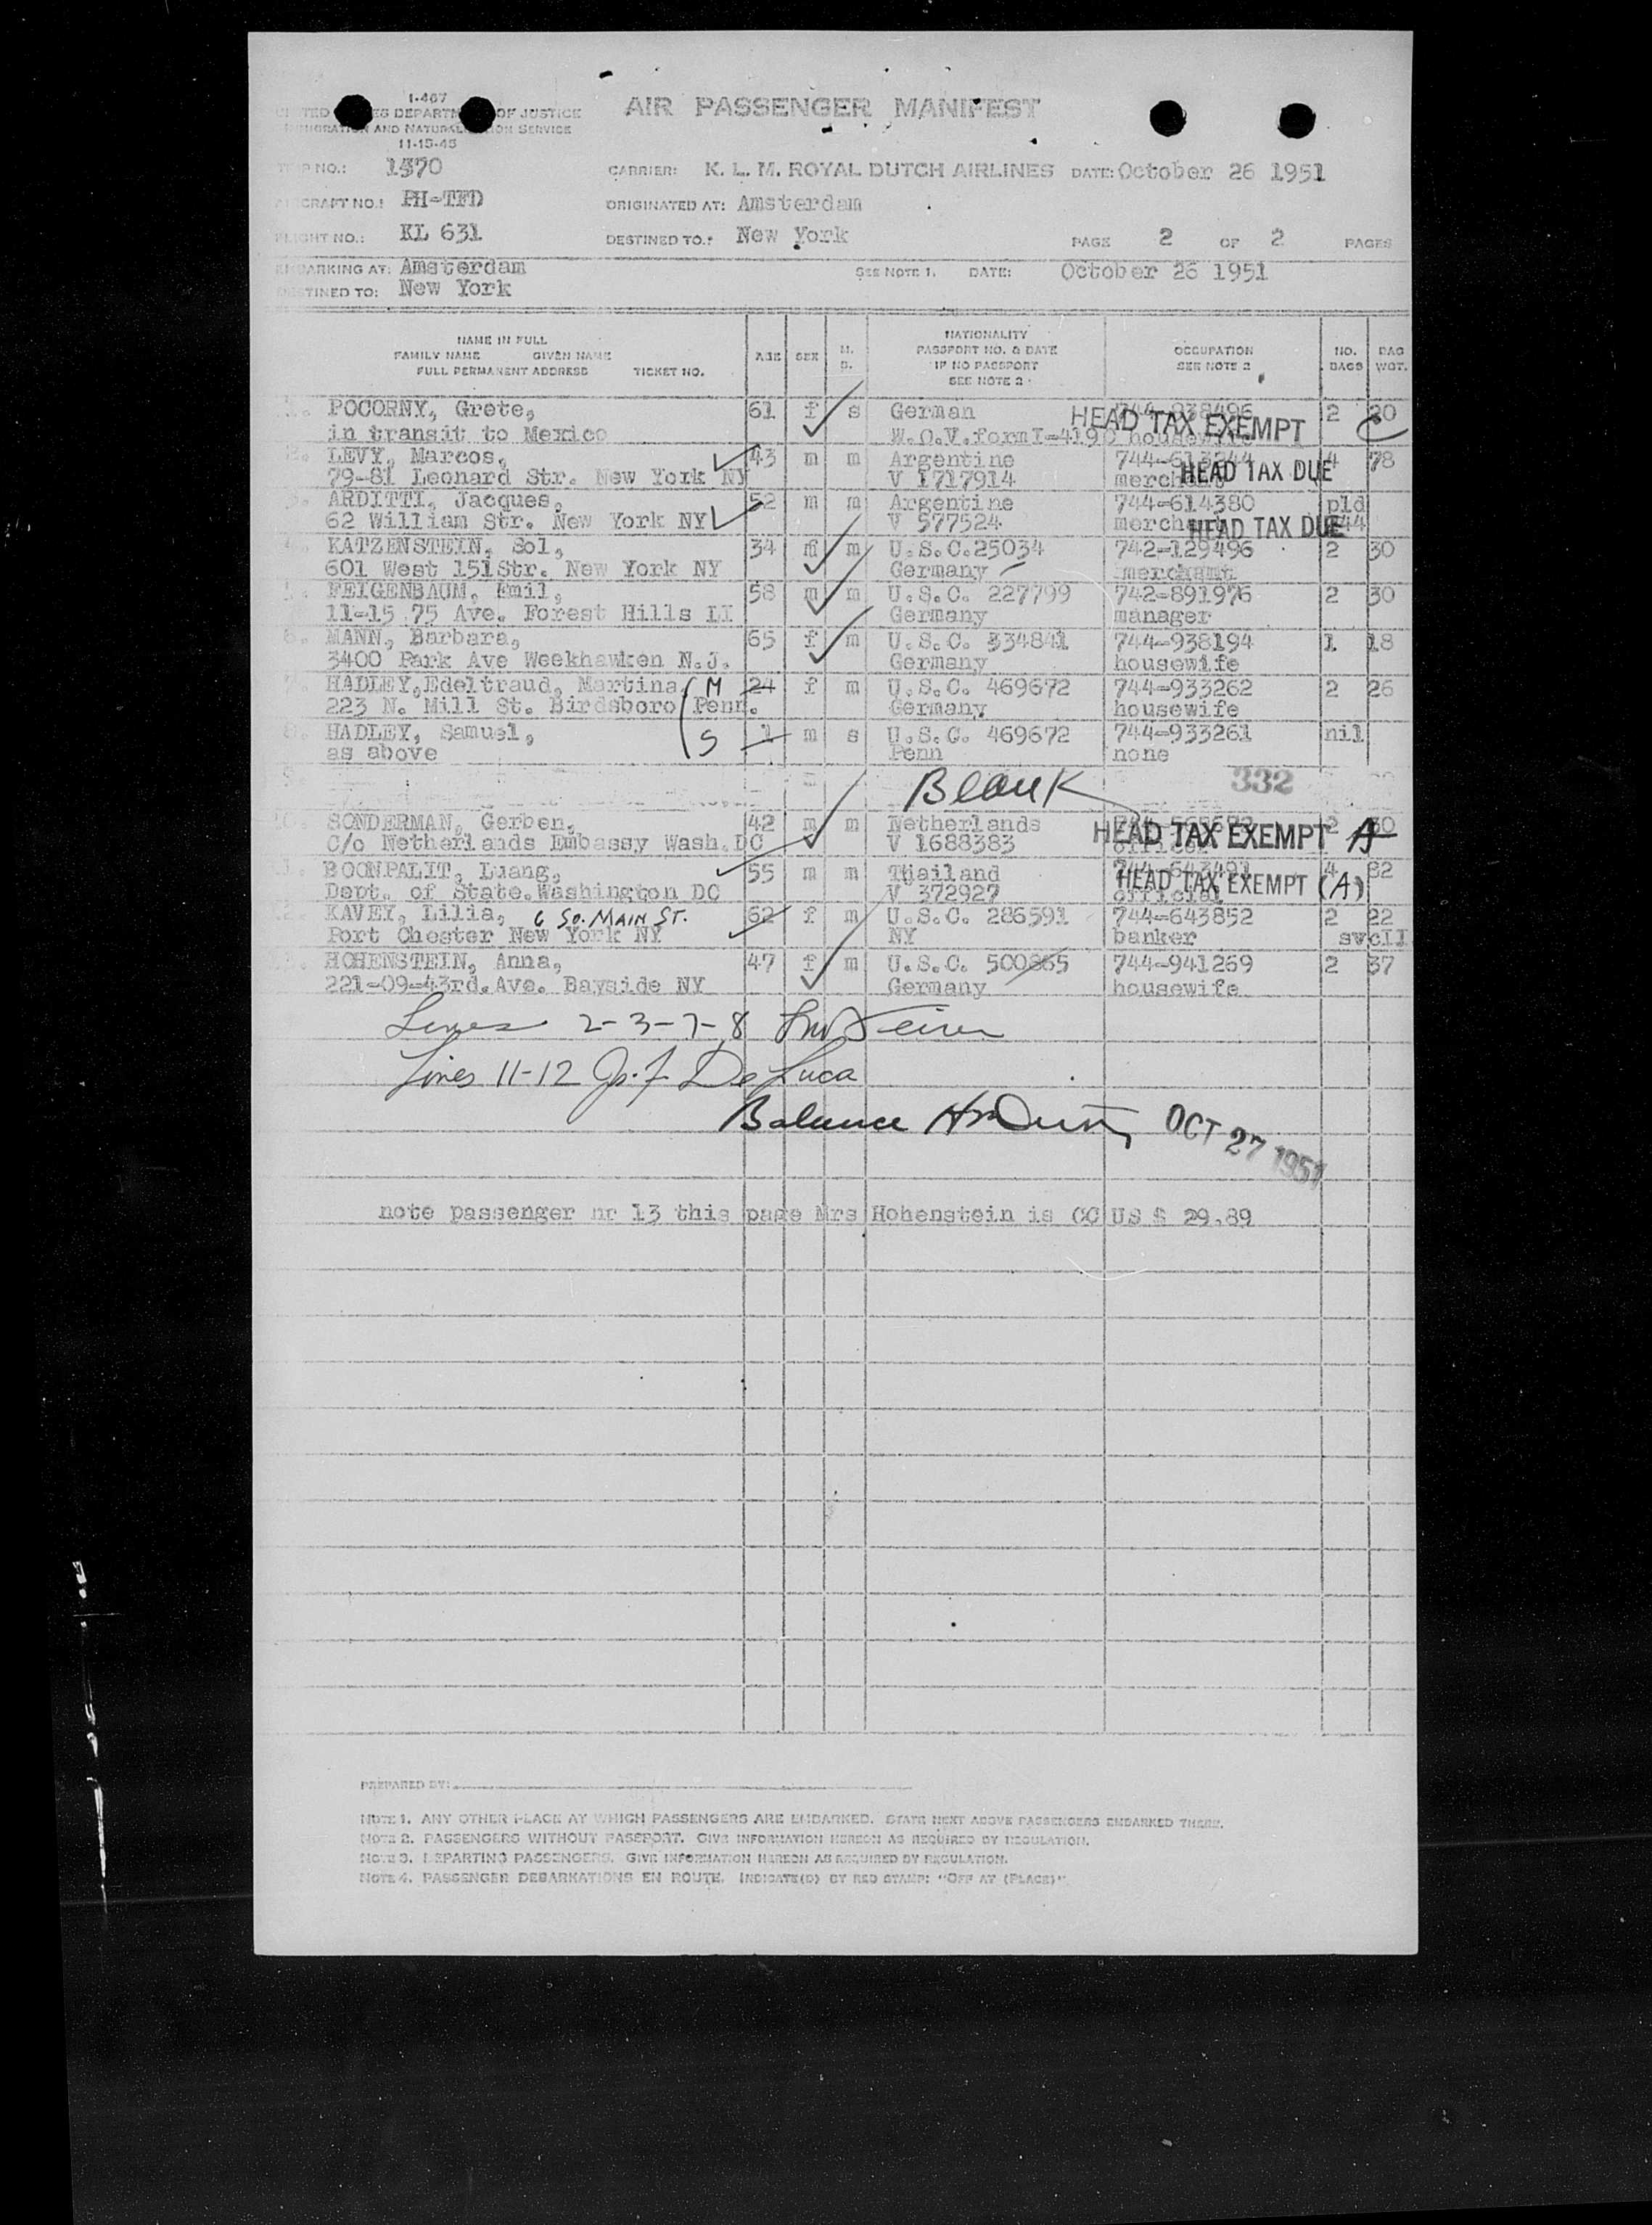 I-467
UNITED STATES DEPARTMENT OF JUSTICE
IMMIGRATION AND NATURALIZATION SERVICE
11-15-45
AIR PASSENGER MANIFEST
TRIP NO.: 1370 CARRIER: K. L. M. ROYAL DUTCH AIRLINES DATE: October 26 1951
AIRCRAFT NO.: PH-TFD ORIGINATED AT: Amsterdam
FLIGHT NO.: KL 631 DESTINED TO.: New York PAGE 2 OF 2 PAGES
EMBARKING AT: Amsterdam SEE NOTE 1. DATE: October 26 1951
DESTINED TO: New York
NAME IN FULL
FAMILY NAME GIVEN NAME
FULL PERMANENT ADDRESS TICKET NO.
AGE SEX M. S.
NATIONALITY
PASSPORT NO. & DATE
IF NO PASSPORT
SEE NOTE 2
OCCUPATION
SEE NOTE 2
NO. BAGS BAG WGT.
1. POCORNY, Grete, 61 f s German 744-938496 2 20
in transit to Mexico W.O.V.formI-4190 housewife
HEAD TAX EXEMPT C
2. LEVY, Marcos, 43 m m Argentine 4 78
79-81 Leonard Str. New York NY V 1717914 merchant
HEAD TAX DUE
3. ARDITTI, Jacques, 52 m m Argentine 744-614380 pld
62 William Str. New York NY V 577524 merchant 44
HEAD TAX DUE
4. KATZENSTEIN, Sol, 34 m m U.S.C.25034 742-129496 2 30
601 West 151Str. New York NY Germany merchant
5. FEIGENBAUM, Emil, 58 m m U.S.C. 227799 742-891976 2 30
11-15 75 Ave. Forest Hills LI Germany manager
6. MANN, Barbara, 65 f m U.S.C. 534841 744-938194 1 18
3400 Park Ave Weekhawken N.J. Germany housewife
7. HADLEY,Edeltraud, Martina, M 24 f m U.S.C. 469672 744-933262 2 26
223 N. Mill St. Birdsboro Penn. Germany housewife
8. HADLEY, Samuel, S 1 m s U.S.C. 469672 744-933261 nil
as above Penn none
9. Blank 332
10. SONDERMAN, Gerben, 42 m m Netherlands 2 30
C/o Netherlands Embassy Wash.DC V 1688383
HEAD TAX EXEMPT A
11. BOONPALIT, Luang, 55 m m Thailand 744-643491 4 82
Dept. of State.Washington DC V 372927 official
HEAD TAX EXEMPT (A)
12. KAVEY, Lilia, 6 SO. MAIN ST. 62 f m U.S.C. 286591 744-643852 2 22
Port Chester New York NY NY banker svcII
13. HOHENSTEIN, Anna, 47 f m U.S.C. 500865 744-941269 2 37
221-09-43rd.Ave. Bayside NY Germany housewife
Lines 2-3-7-8
Lines 11-12 De Luca
Balance
OCT 27 1951
note passenger nr 13 this page Mrs Hohenstein is CC US $ 29.89
PREPARED BY:
NOTE 1. ANY OTHER PLACE AT WHICH PASSENGERS ARE EMBARKED. STATE NEXT ABOVE PASSENGERS EMBARKED THERE.
NOTE 2. PASSENGERS WITHOUT PASSPORT. GIVE INFORMATION HEREON AS REQUIRED BY REGULATION.
NOTE 3. DEPARTING PASSENGERS. GIVE INFORMATION HEREON AS REQUIRED BY REGULATION.
NOTE 4. PASSENGER DEBARKATIONS EN ROUTE. INDICATE(D) BY RED STAMP: "OFF AT (PLACE)".